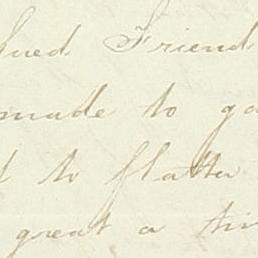 lued Friend
made to ga
to flatter
great a tim